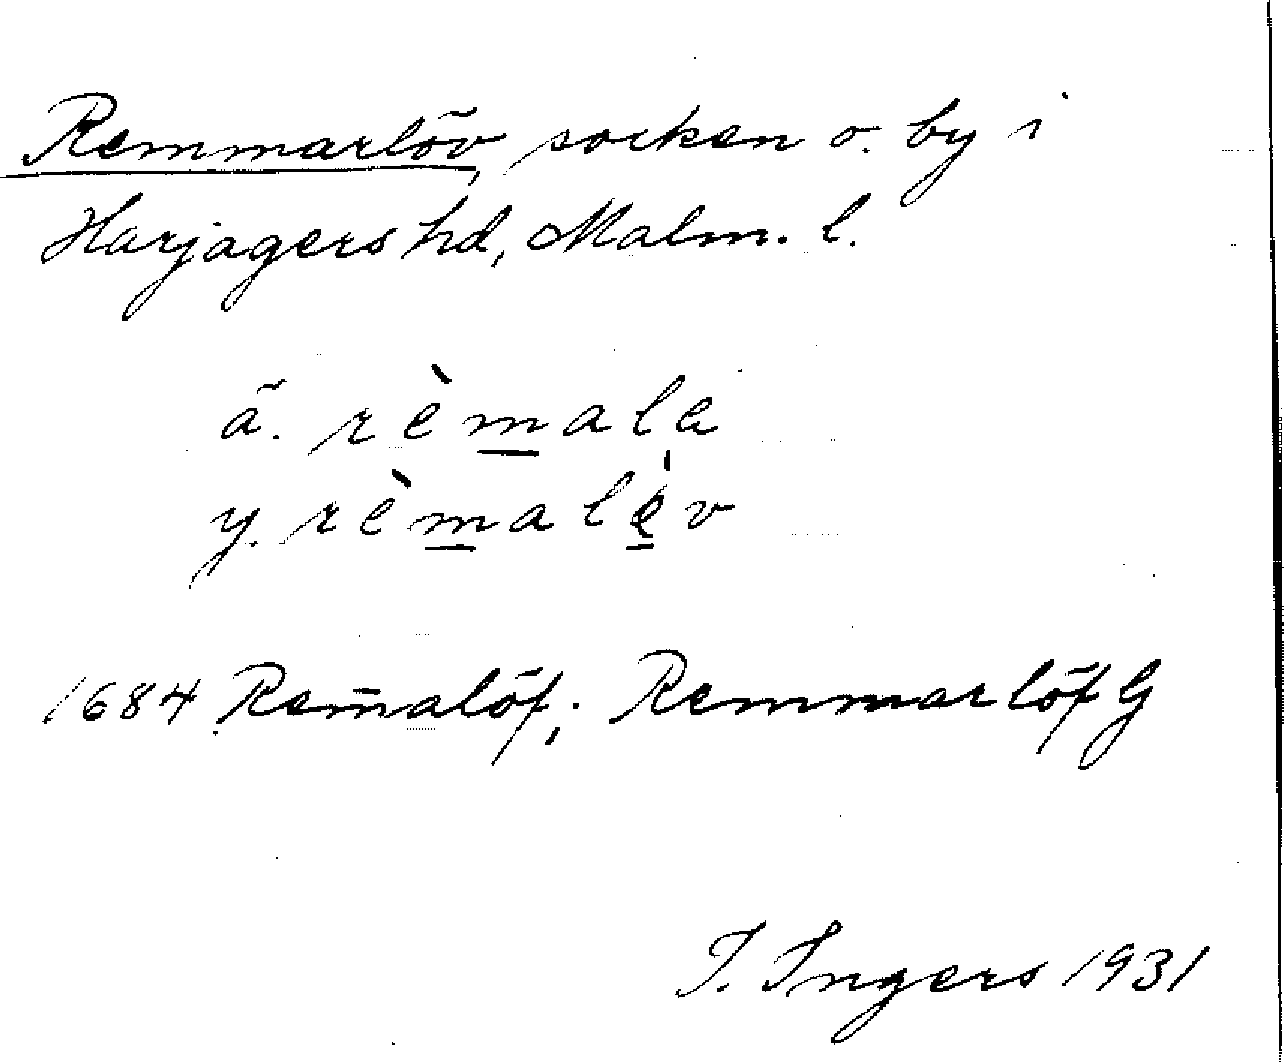 Remmarlöv, socken o. by i
Harjagers hd, Malm. l.
ä. rèmale
y. rèmalev
1684 Rem̄alöf; Remmarlöf G
I. Ingers 1931